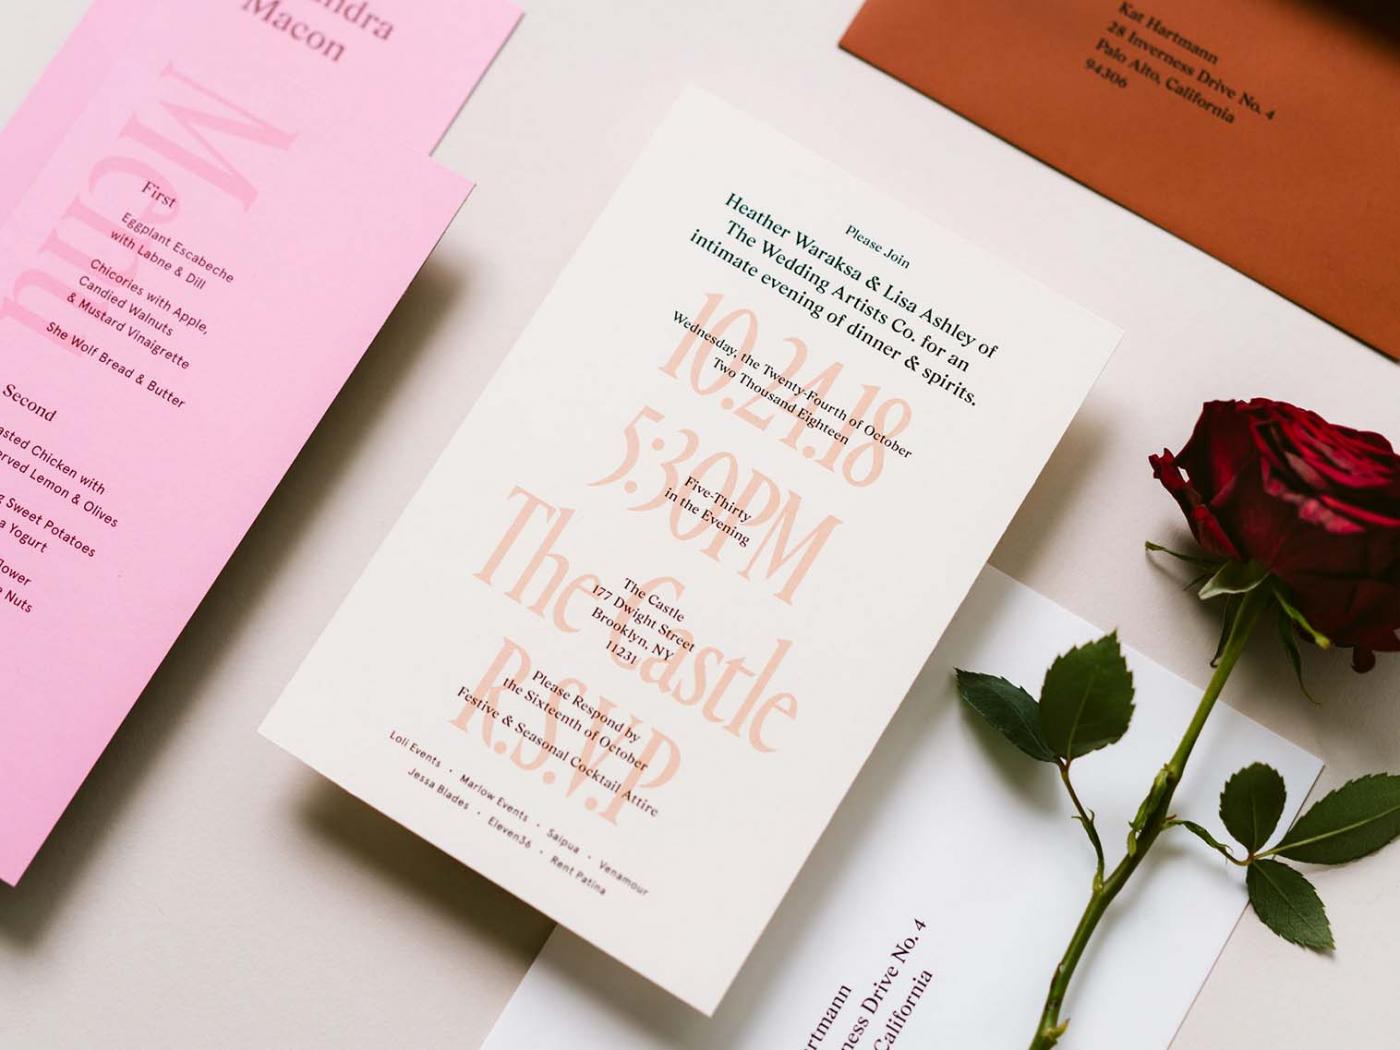 Macon
Menu
First
Eggplant Escabeche
with Labne & Dill
Chicories with Apple,
Candied Walnuts
& Mustard Vinaigrette
She Wolf Bread & Butter
Second
Chicken with
Lemon & Olives
Sweet Potatoes
Yogurt
Nuts
Please Join
Heather Waraksa & Lisa Ashley of
The Wedding Artists Co. for an
intimate evening of dinner & spirits.
10.24.18
Wednesday, the Twenty-Fourth of October
Two Thousand Eighteen
5:30PM
Five-Thirty
in the Evening
The Castle
The Castle
177 Dwight Street
Brooklyn, NY
11231
R.S.V.P
Please Respond by
the Sixteenth of October
Festive & Seasonal Cocktail Attire
Loli Events • Marlow Events • Saipua • Venamour
Jessa Blades • Eleven36 • Rent Patina
Kat Hartmann
28 Inverness Drive No. 4
Palo Alto, California
94306
Drive No. 4
California